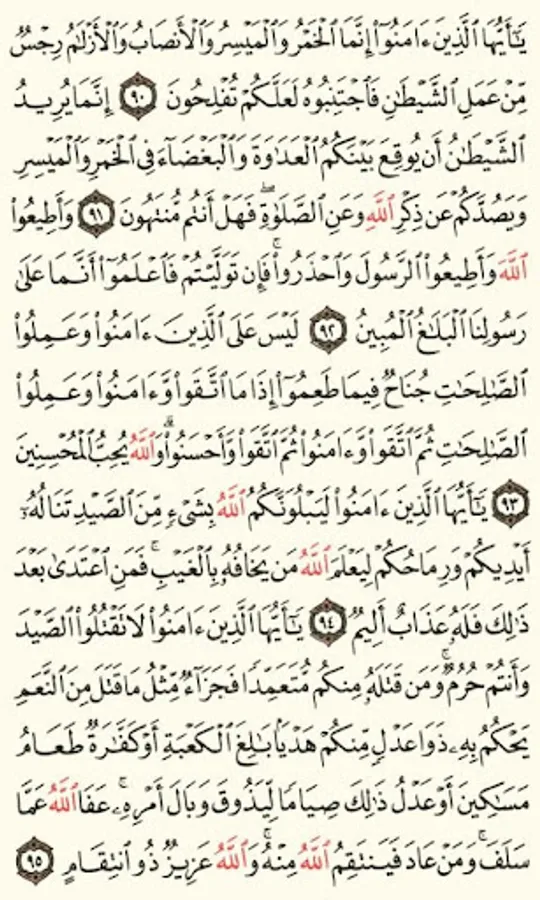 يَٰٓأَيُّهَا ٱلَّذِينَ ءَامَنُوٓاْ إِنَّمَا ٱلۡخَمۡرُ وَٱلۡمَيۡسِرُ وَٱلۡأَنصَابُ وَٱلۡأَزۡلَٰمُ رِجۡسٞ
مِّنۡ عَمَلِ ٱلشَّيۡطَٰنِ فَٱجۡتَنِبُوهُ لَعَلَّكُمۡ تُفۡلِحُونَ ٩٠ إِنَّمَا يُرِيدُ
ٱلشَّيۡطَٰنُ أَن يُوقِعَ بَيۡنَكُمُ ٱلۡعَدَٰوَةَ وَٱلۡبَغۡضَآءَ فِي ٱلۡخَمۡرِ وَٱلۡمَيۡسِرِ
وَيَصُدَّكُمۡ عَن ذِكۡرِ ٱللَّهِ وَعَنِ ٱلصَّلَوٰةِۖ فَهَلۡ أَنتُم مُّنتَهُونَ ٩١ وَأَطِيعُواْ
ٱللَّهَ وَأَطِيعُواْ ٱلرَّسُولَ وَٱحۡذَرُواْۚ فَإِن تَوَلَّيۡتُمۡ فَٱعۡلَمُوٓاْ أَنَّمَا عَلَىٰ
رَسُولِنَا ٱلۡبَلَٰغُ ٱلۡمُبِينُ ٩٢ لَيۡسَ عَلَى ٱلَّذِينَ ءَامَنُواْ وَعَمِلُواْ
ٱلصَّٰلِحَٰتِ جُنَاحٞ فِيمَا طَعِمُوٓاْ إِذَا مَا ٱتَّقَواْ وَّءَامَنُواْ وَعَمِلُواْ
ٱلصَّٰلِحَٰتِ ثُمَّ ٱتَّقَواْ وَّءَامَنُواْ ثُمَّ ٱتَّقَواْ وَّأَحۡسَنُواْۗ وَٱللَّهُ يُحِبُّ ٱلۡمُحۡسِنِينَ
٩٣ يَٰٓأَيُّهَا ٱلَّذِينَ ءَامَنُواْ لَيَبۡلُوَنَّكُمُ ٱللَّهُ بِشَيۡءٖ مِّنَ ٱلصَّيۡدِ تَنَالُهُۥٓ
أَيۡدِيكُمۡ وَرِمَاحُكُمۡ لِيَعۡلَمَ ٱللَّهُ مَن يَخَافُهُۥ بِٱلۡغَيۡبِۚ فَمَنِ ٱعۡتَدَىٰ بَعۡدَ
ذَٰلِكَ فَلَهُۥ عَذَابٌ أَلِيمٞ ٩٤ يَٰٓأَيُّهَا ٱلَّذِينَ ءَامَنُواْ لَا تَقۡتُلُواْ ٱلصَّيۡدَ
وَأَنتُمۡ حُرُمٞۚ وَمَن قَتَلَهُۥ مِنكُم مُّتَعَمِّدٗا فَجَزَآءٞ مِّثۡلُ مَا قَتَلَ مِنَ ٱلنَّعَمِ
يَحۡكُمُ بِهِۦ ذَوَا عَدۡلٖ مِّنكُمۡ هَدۡيَۢا بَٰلِغَ ٱلۡكَعۡبَةِ أَوۡ كَفَّٰرَةٞ طَعَامُ
مَسَٰكِينَ أَوۡ عَدۡلُ ذَٰلِكَ صِيَامٗا لِّيَذُوقَ وَبَالَ أَمۡرِهِۦۗ عَفَا ٱللَّهُ عَمَّا
سَلَفَۚ وَمَنۡ عَادَ فَيَنتَقِمُ ٱللَّهُ مِنۡهُۚ وَٱللَّهُ عَزِيزٞ ذُو ٱنتِقَامٍ ٩٥